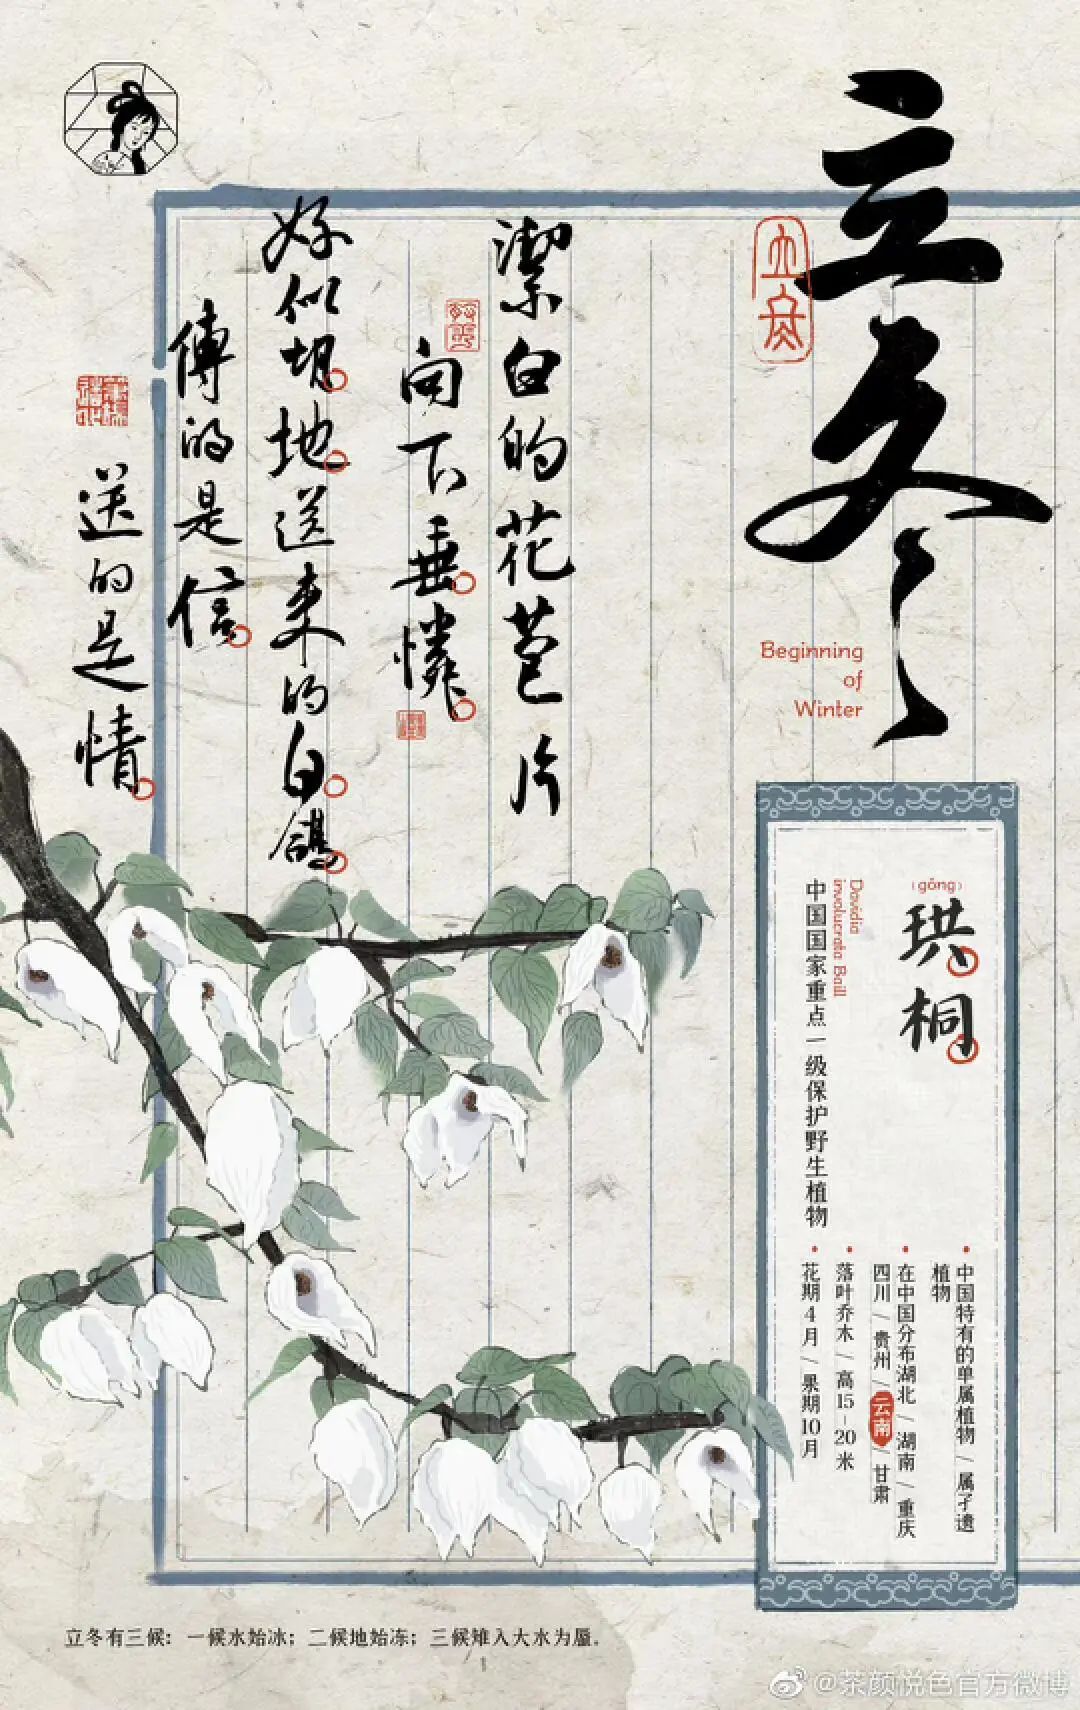 立冬
立冬
Beginning
of
Winter
潔白的花苞片
向下垂憐
好似胡地送来的白鴿
傳的是信
送的是情
(gǒng)
珙桐
Davidia
involucrata Baill
中国国家重点一级保护野生植物
• 中国特有的单属植物/属孑遗
植物
• 在中国分布湖北/湖南/重庆
四川/贵州/云南/甘肃
• 落叶乔木/高15-20米
• 花期4月/果期10月
立冬有三候：一候水始冰；二候地始冻；三候雉入大水为蜃。
@茶颜悦色官方微博